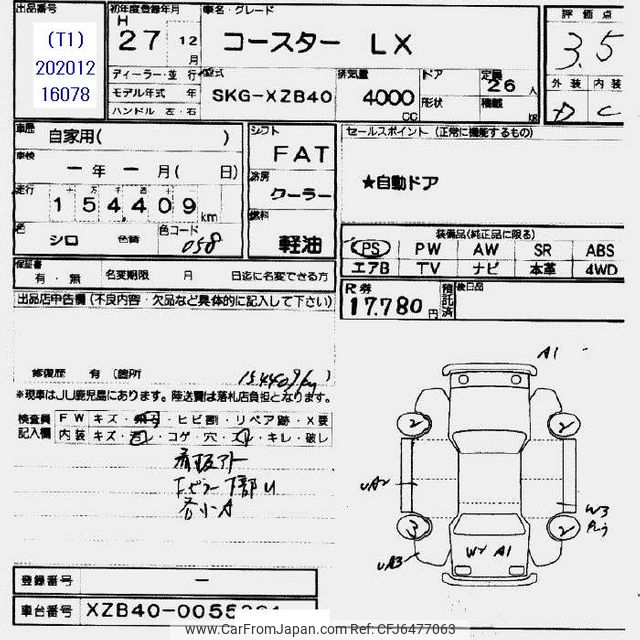 出品番号
(T1)
202012
16078
初年度登録年月
H
27 12
月
ディーラー・並行
モデル年式 年
ハンドル 左・右
車名・グレード
コースター LX
型式
SKG-XZB40
排気量
4000
CC
ドア
形状
定員
26人
積載
kg
評価点
3.5
外装 内装
D C
車歴
自家用( )
車検
ー年ー月( 日)
走行
154,409 km
色
シロ 色替
色コード
058
シフト
FAT
冷房
クーラー
燃料
軽油
セールスポイント (正常に機能するもの)
★自動ドア
装備品(純正品に限る)
PS PW AW SR ABS
エアB TV ナビ 本革 4WD
保証書
有・無
名変期限 月 日迄に名変できる方
R券
17,780円
預託済
後日品
出品店申告欄 (不良内容・欠品など具体的に記入して下さい)
修復歴 有 (箇所 )
※現車はJU鹿児島にあります。陸送費は落札店負担となります。
検査員
記入欄
FW キズ・ ・ヒビ割・リペア跡・X要
内装 キズ・ ・コゲ・穴・ ・キレ・破レ
看板アト
下部U
各小A
A1
2
2
UA2
W3
3
2
UA3
W2 A1
登録番号
ー
車台番号
XZB40-0055
www.CarFromJapan.com Ref: CFJ6477063